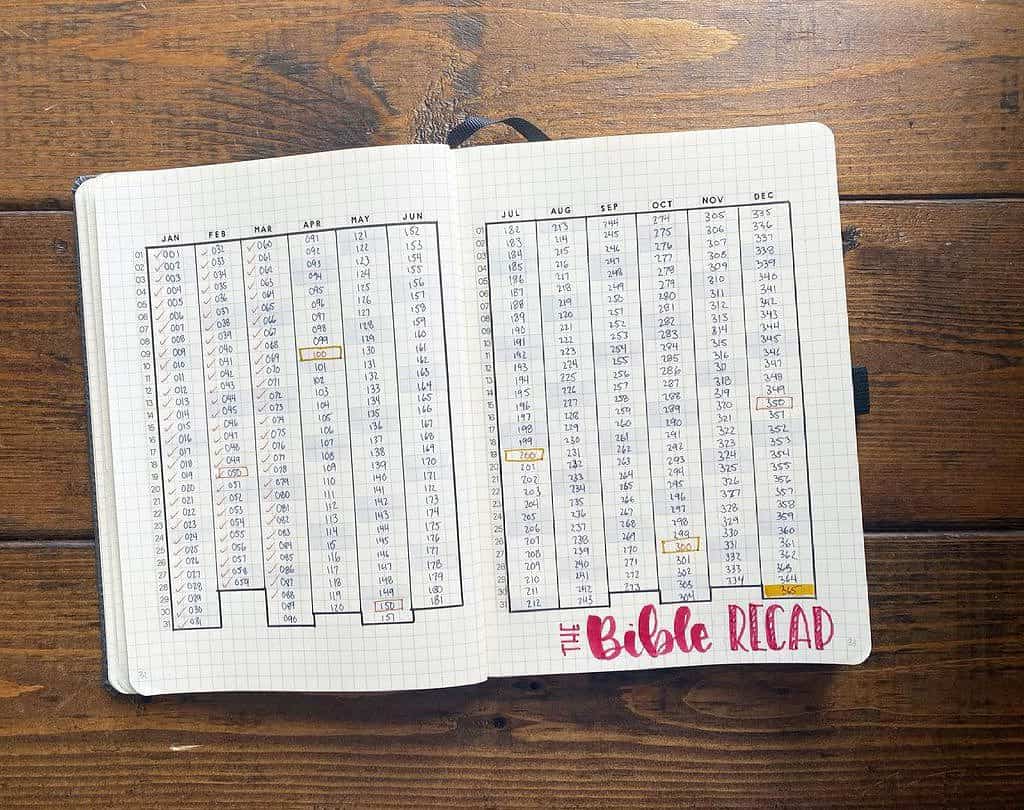 JAN FEB MAR APR MAY JUN
01 001 032 060 091 121 152
02 002 033 061 092 122 153
03 003 034 062 093 123 154
04 004 035 063 094 124 155
05 005 036 064 095 125 156
06 006 037 065 096 126 157
07 007 038 066 097 127 158
08 008 039 067 098 128 159
09 009 040 068 099 129 160
10 010 041 069 100 130 161
11 011 042 070 101 131 162
12 012 043 071 102 132 163
13 013 044 072 103 133 164
14 014 045 073 104 134 165
15 015 046 074 105 135 166
16 016 047 075 106 136 167
17 017 048 076 107 137 168
18 018 049 077 108 138 169
19 019 050 078 109 139 170
20 020 051 079 110 140 171
21 021 052 080 111 141 172
22 022 053 081 112 142 173
23 023 054 082 113 143 174
24 024 055 083 114 144 175
25 025 056 084 115 145 176
26 026 057 085 116 146 177
27 027 058 086 117 147 178
28 028 059 087 118 148 179
29 029 088 119 149 180
30 030 089 120 150 181
31 031 090 151
32
JUL AUG SEP OCT NOV DEC
01 182 213 244 274 305 335
02 183 214 245 275 306 336
03 184 215 246 276 307 337
04 185 216 247 277 308 338
05 186 217 248 278 309 339
06 187 218 249 279 310 340
07 188 219 250 280 311 341
08 189 220 251 281 312 342
09 190 221 252 282 313 343
10 191 222 253 283 314 344
11 192 223 254 284 315 345
12 193 224 255 285 316 346
13 194 225 256 286 317 347
14 195 226 257 287 318 348
15 196 227 258 288 319 349
16 197 228 259 289 320 350
17 198 229 260 290 321 351
18 199 230 261 291 322 352
19 200 231 262 292 323 353
20 201 232 263 293 324 354
21 202 233 264 294 325 355
22 203 234 265 295 326 356
23 204 235 266 296 327 357
24 205 236 267 297 328 358
25 206 237 268 298 329 359
26 207 238 269 299 330 360
27 208 239 270 300 331 361
28 209 240 271 301 332 362
29 210 241 272 302 333 363
30 211 242 273 303 334 364
31 212 243 304 365
THE Bible RECAP